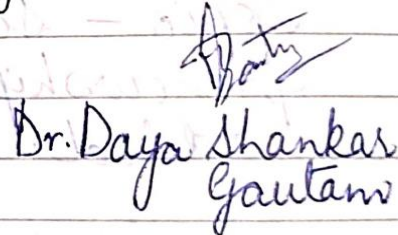 Dr. Daya Shankar
Gautam